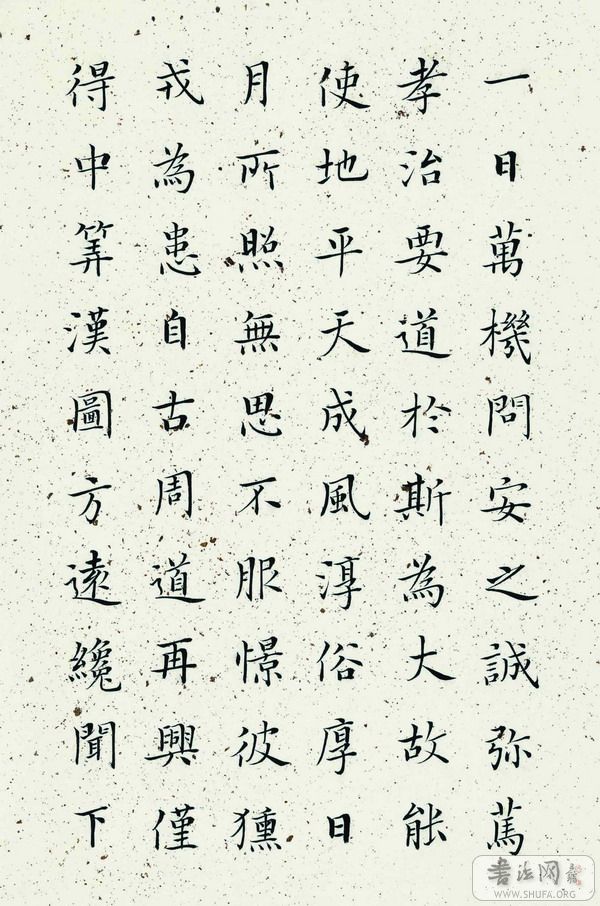 一日萬機問安之誠弥篤
孝治要道於斯為大故能
使地平天成風淳俗厚日
月所照無思不服憬彼獯
戎為患自古周道再興僅
得中筭漢圖方遠纔聞下
書法网
WWW.SHUFA.ORG